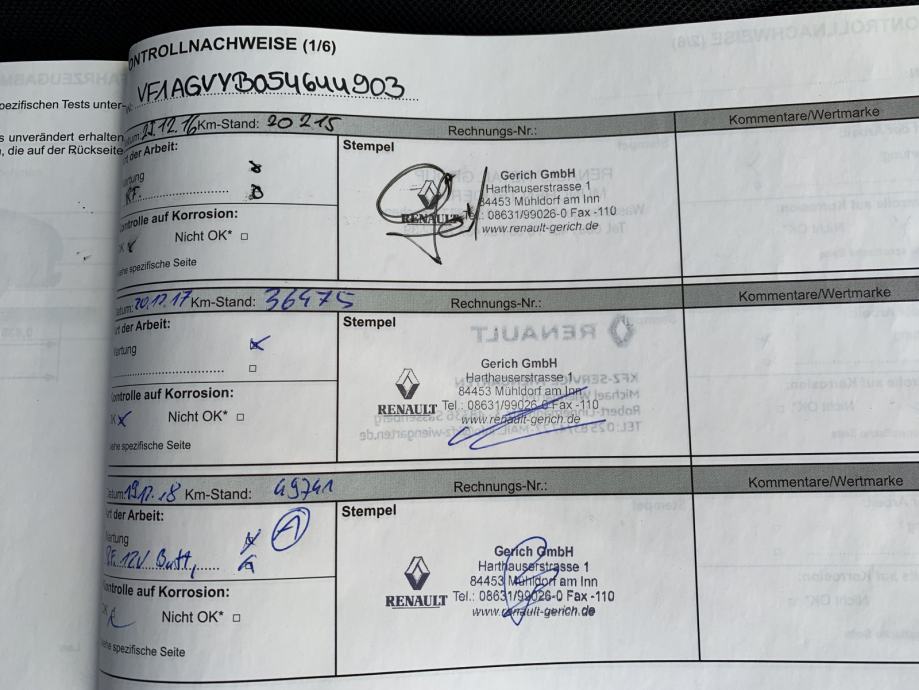 ONTROLLNACHWEISE (1/6)
VF1AGVYB054644903
pezifischen Tests unter-
s unverändert erhalten
, die auf der Rückseite
Km-Stand: 20215
Rechnungs-Nr.:
Kommentare/Wertmarke
t der Arbeit:
artung
Stempel
Gerich GmbH
Harthauserstrasse 1
84453 Mühldorf am Inn
RENAULT Tel.: 08631/99026-0 Fax -110
www.renault-gerich.de
ontrolle auf Korrosion:
OK Nicht OK*
iehe spezifische Seite
atum: 20.12.17 Km-Stand: 36475
Rechnungs-Nr.:
Kommentare/Wertmarke
rt der Arbeit:
artung
Stempel
Gerich GmbH
Harthauserstrasse 1
84453 Mühldorf am Inn
RENAULT Tel.: 08631/99026-0 Fax -110
www.renault-gerich.de
ontrolle auf Korrosion:
K Nicht OK*
ehe spezifische Seite
atum: 19.12.18 Km-Stand: 49741
Rechnungs-Nr.:
Kommentare/Wertmarke
rt der Arbeit:
artung
A
12V Batt.
Stempel
Gerich GmbH
Harthauserstrasse 1
84453 Mühldorf am Inn
RENAULT Tel.: 08631/99026-0 Fax -110
www.renault-gerich.de
ontrolle auf Korrosion:
OK Nicht OK*
ehe spezifische Seite